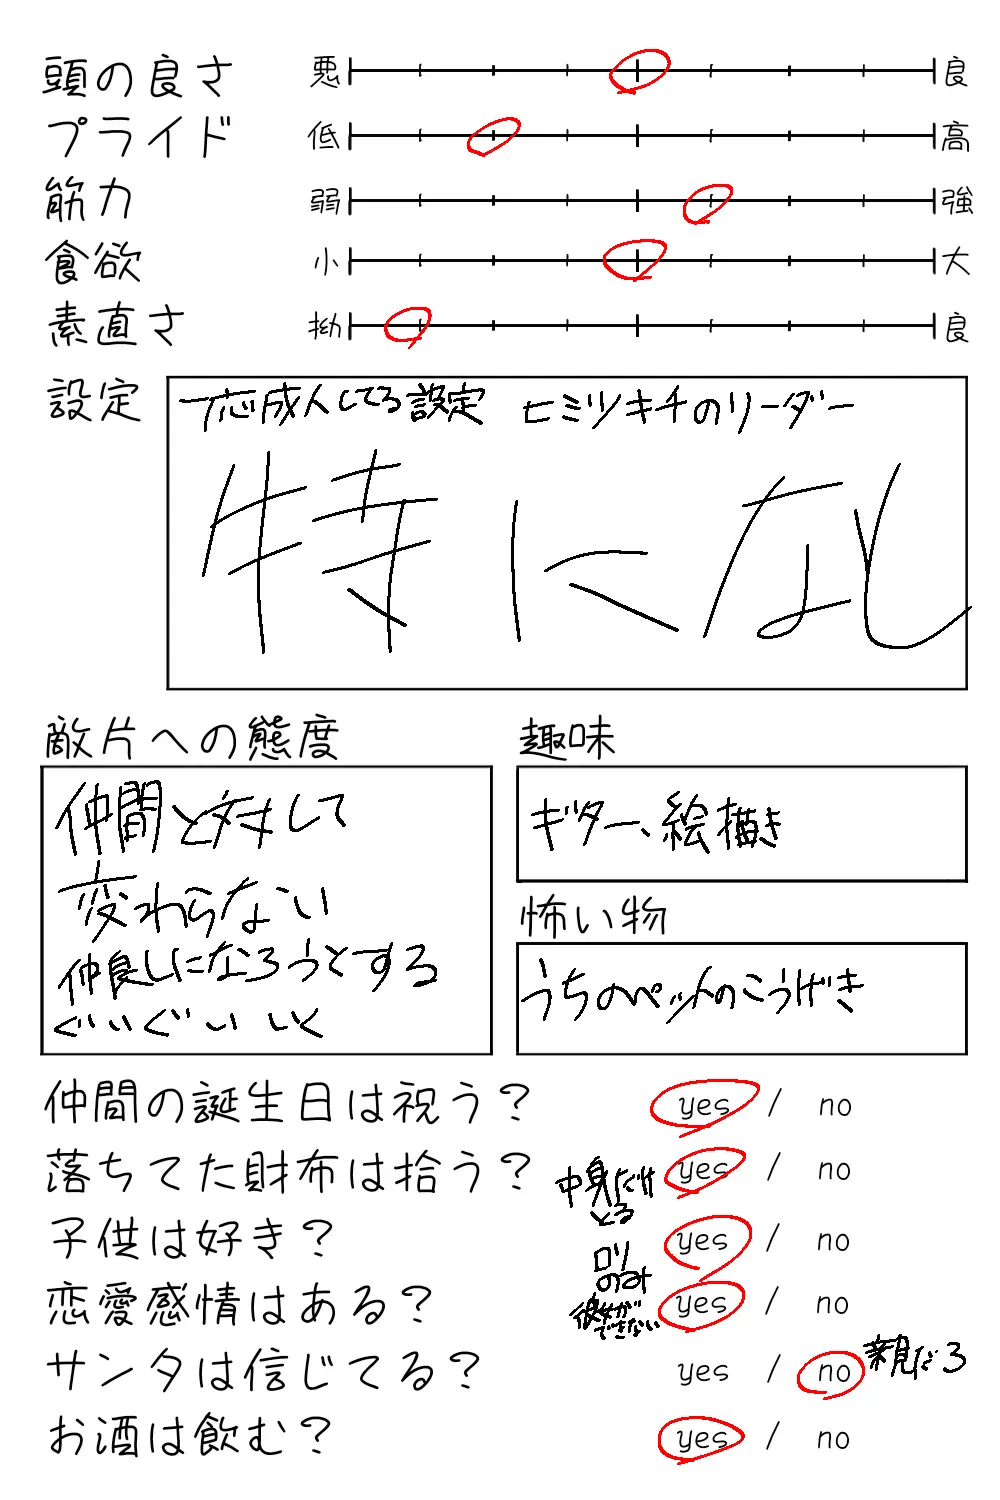 頭の良さ 悪 良
プライド 低 高
筋力 弱 強
食欲 小 大
素直さ 拗 良
設定
一応成人してる設定 ヒミツキチのリーダー
特になし
敵片への態度
仲間と対して
変わらない
仲良しになろうとする
ぐいぐい いく
趣味
ギター、絵描き
怖い物
うちのペットのこうげき
仲間の誕生日は祝う? yes / no
落ちてた財布は拾う? yes / no
中身だけ
とる
子供は好き? yes / no
ロリ
のみ
恋愛感情はある? yes / no
彼女が
できない
サンタは信じてる? yes / no 親だろ
お酒は飲む? yes / no